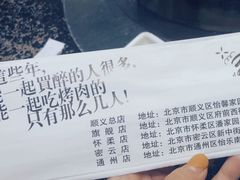 這些年,
能一起買醉的人很多,
能一起吃烤肉的
只有那么几人!
顺义总店
旗舰店
怀柔店
密云店
通州店
地址:北京市顺义区怡馨家
地址:北京市顺义区府前西
地址:北京市怀柔区潘家园
地址:北京市密云区新中街
地址:北京市通州区怡乐南